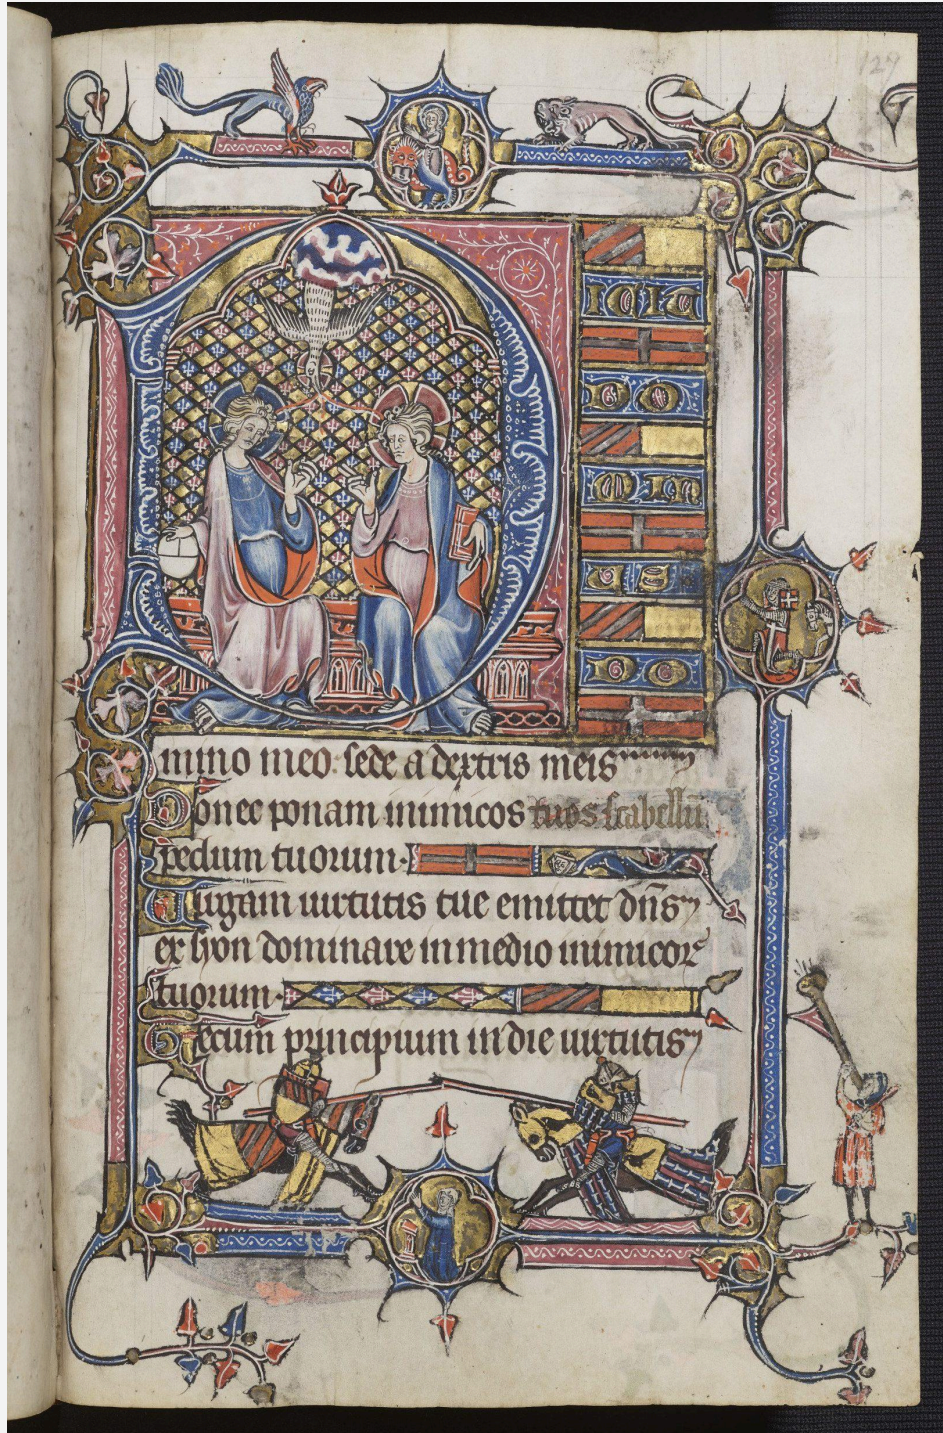 127
ixit
do
min
us
do
mino meo. sede a dextris meis
Donec ponam inimicos tuos scabellū
pedum tuorum.
Uirgam uirtutis tue emittet dn̄s
ex syon dominare in medio inimicor̄
tuorum.
Tecum principium in die uirtutis